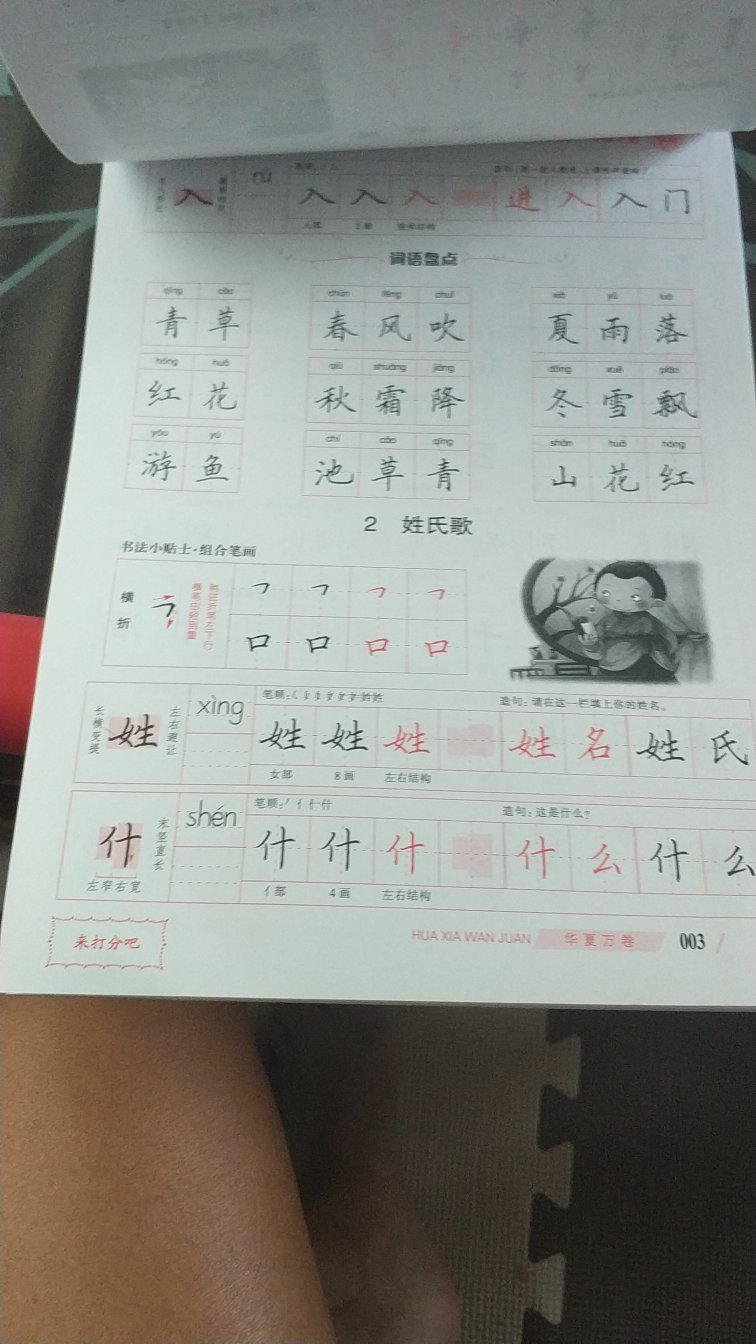 rù
入 入 入 入 进 入 入 门
词语盘点
qīng cǎo chūn fēng chuī xià yǔ luò
青草 春风吹 夏雨落
hóng huā qiū shuāng jiàng dōng xuě piāo
红花 秋霜降 冬雪飘
yóu yú chí cǎo qīng shān huā hóng
游鱼 池草青 山花红
2 姓氏歌
书法小贴士·组合笔画
横折
横笔由轻到重
口 口 口 口
长横变提
姓
左右避让
xìng
造句：请在这一栏填上你的姓名。
姓 姓 姓 姓 名 姓 氏
女部 8画 左右结构
什
末竖直长
左窄右宽
shén
造句：这是什么？
什 什 什 什 么 什 么
亻部 4画 左右结构
来打分吧
HUA XIA WAN JUAN 华夏万卷 003